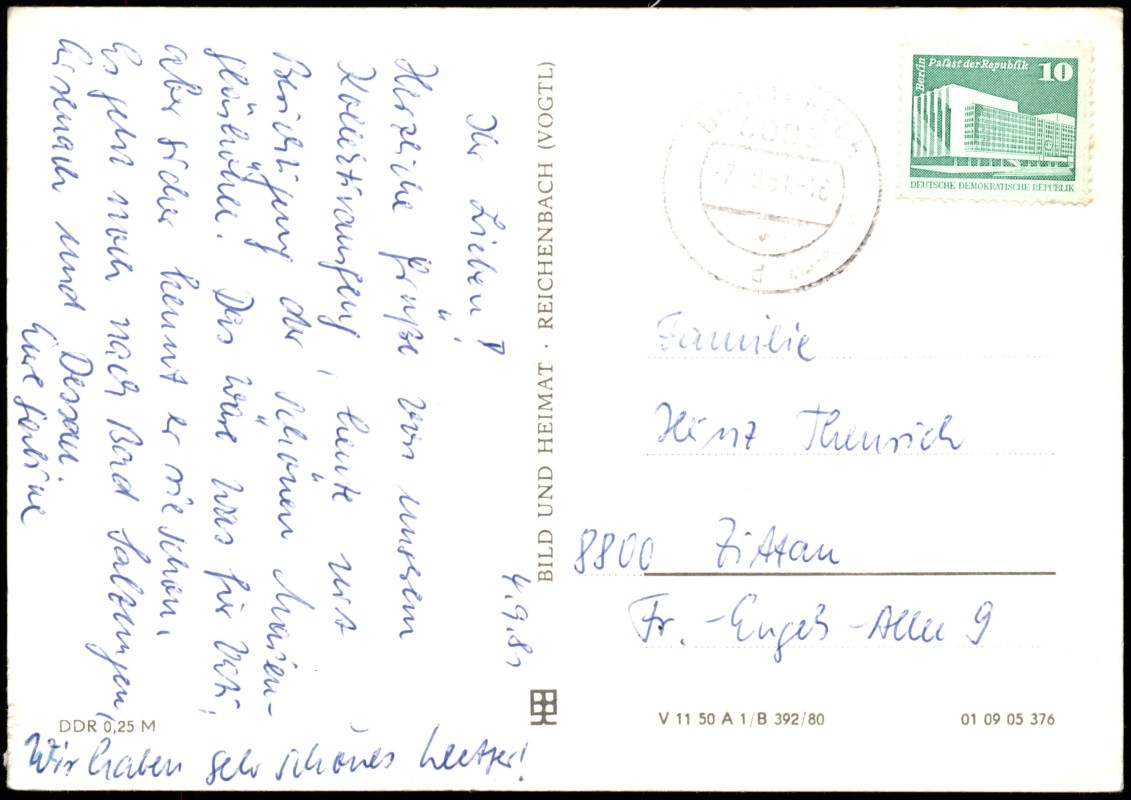 4.9.81
Ihr Lieben!
Herzliche Grüße von unserem
Kollektivausflug, heute mit
Besichtigung der schönen Marien-
glashöhle. Das wäre was für Vati,
aber sicher kennt er sie schon.
Es geht noch nach Bad Salzungen,
Eisenach und Dessau.
Eure Sabine
Wir haben sehr schönes Wetter!
DDR 0,25 M
BILD UND HEIMAT · REICHENBACH (VOGTL)
Berlin
Palast der Republik
10
DEUTSCHE DEMOKRATISCHE REPUBLIK
Familie
Heinz Thenrich
8800 Zittau
Fr.-Engels-Allee 9
V 11 50 A 1/B 392/80
01 09 05 376